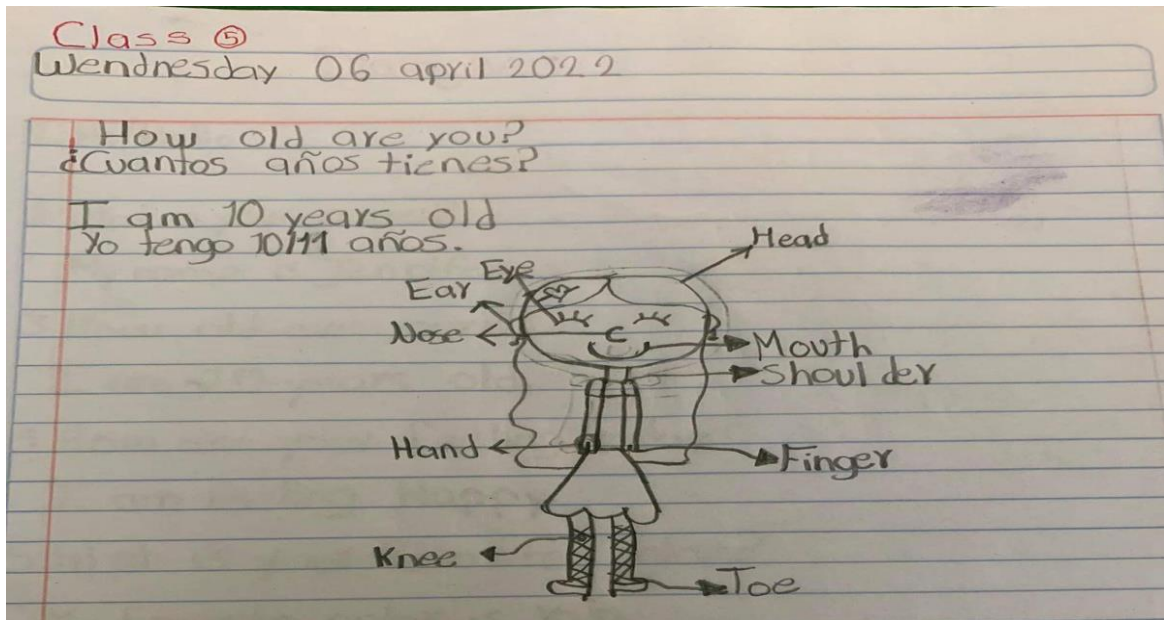 Class ⑤
Wendnesday 06 april 2022
How old are you?
¿Cuantos años tienes?
I am 10 years old
Yo tengo 10/11 años.
Head
Eye
Ear
Nose
Mouth
Shoulder
Hand
Finger
Knee
Toe